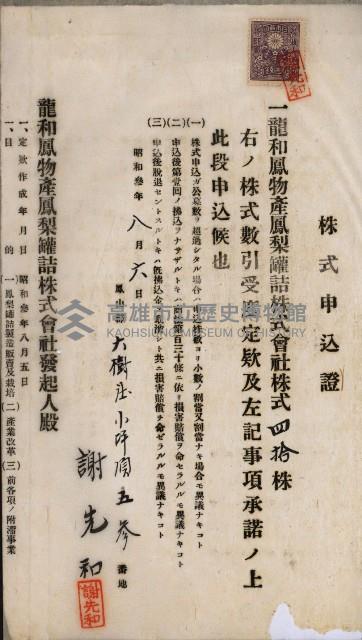 株式申込證
一龍和鳳物產鳳梨罐詰株式會社株式四拾株
右ノ株式數引受度定款及左記事項承諾ノ上
此段申込候也
(一)株式申込ガ公募數ヲ超過シタル場合ハ
ヨリ小數ノ割當又割當ナキ場合モ異議ナキコト
(二)申込後第壹回ノ拂込ヲナサザルトキハ商法第百三十條ニ依リ損害賠償ヲ命セラルルモ異議ナキコト
(三)申込後脫退セントスルトキハ
共ニ損害賠償ヲ命ゼラルルモ異議ナキコト
昭和參年八月六日
鳳山
大樹庄小坪頂五參番地
謝先和
謝先和
龍和鳳物產鳳梨罐詰株式會社發起人殿
一、定款作成年月日 昭和參年八月五日
一、目的 (一)鳳梨罐詰製造販賣及栽培(二)產業改革(三)前各項ノ附帶事業
高雄市立歷史博物館
KAOHSIUNG MUSEUM OF HISTORY